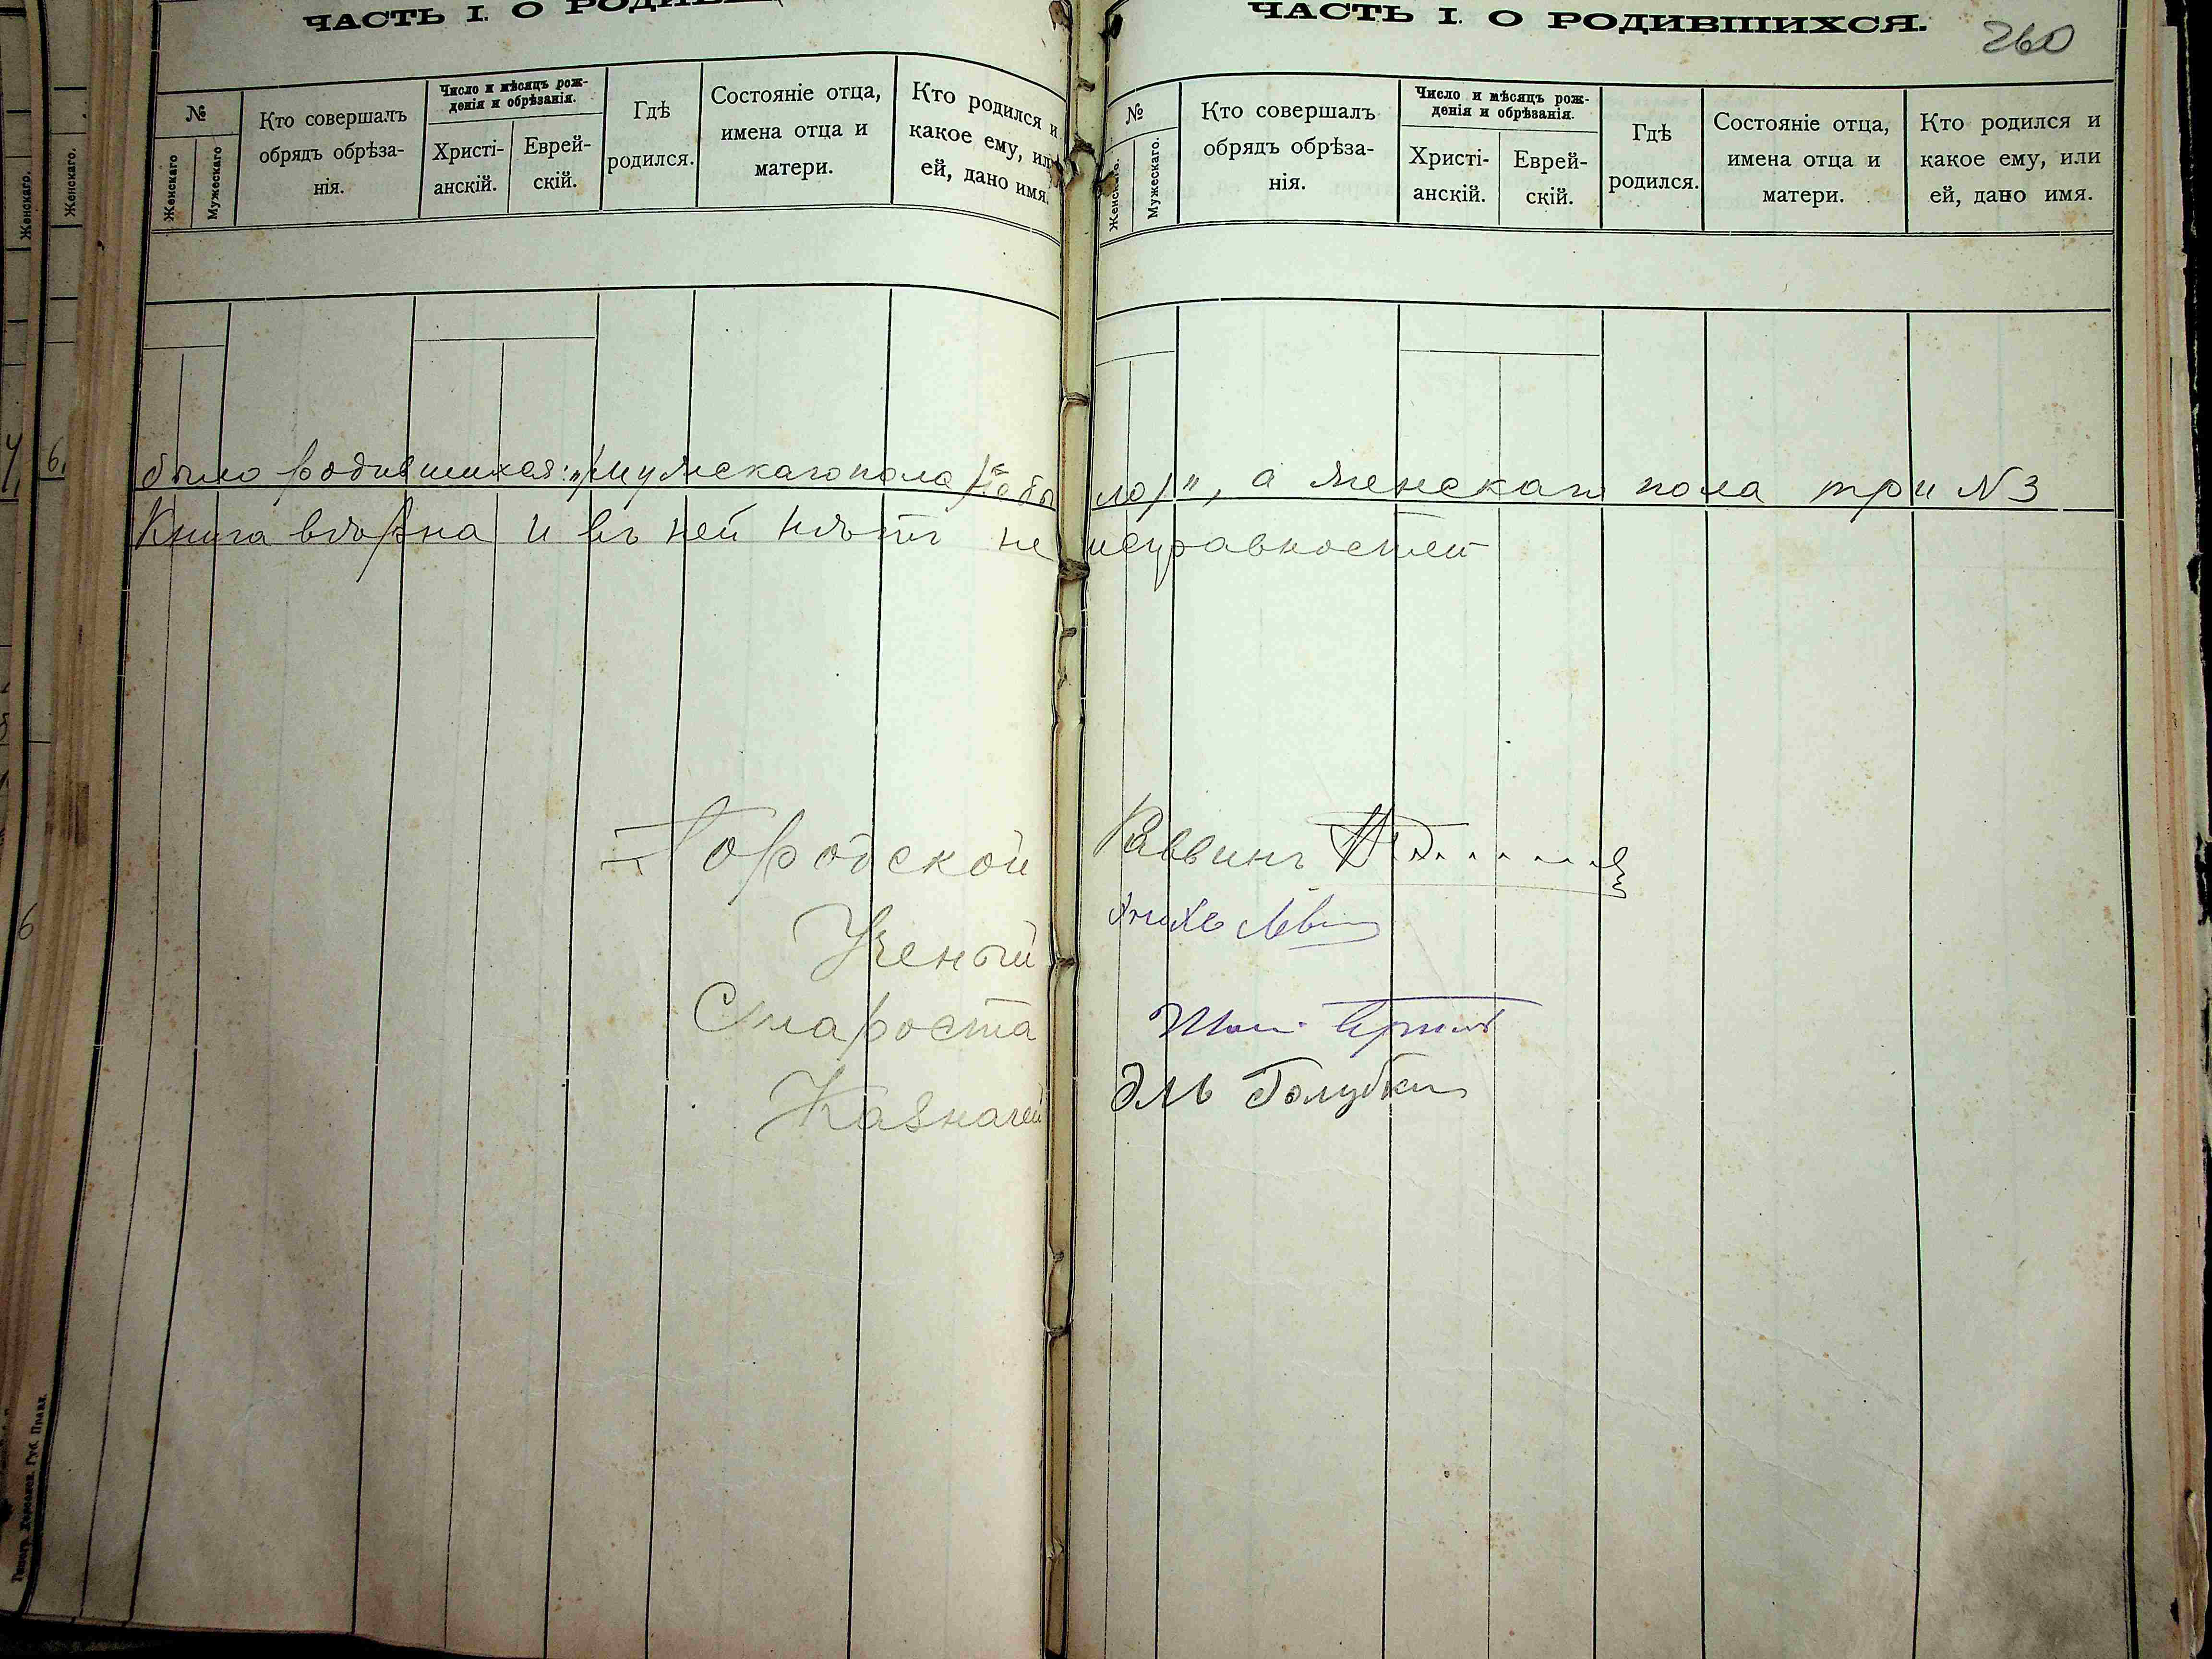 ЧАСТЬ I. О РОДИВШ
№
Женскаго
Мужескаго
Кто совершалъ
обрядъ обрѣза-
нія.
Число и мѣсяцъ рож-
денія и обрѣзанія.
Христі-
анскій.
Еврей-
скій.
Гдѣ
родился.
Состояніе отца,
имена отца и
матери.
Кто родился и
какое ему, или
ей, дано имя.
ЧАСТЬ I. О РОДИВШИХСЯ.
260
№
Женскаго.
Мужескаго.
Кто совершалъ
обрядъ обрѣза-
нія.
Число и мѣсяцъ рож-
денія и обрѣзанія.
Христі-
анскій.
Еврей-
скій.
Гдѣ
родился.
Состояніе отца,
имена отца и
матери.
Кто родился и
какое ему, или
ей, дано имя.
Женскаго.
Женскаго.
6.
было родившихся: „мужскаго пола /не было/", а женскаго пола три N 3
Книга вѣрна и въ ней нѣтъ неисправностей
Городской Раввинъ
Ученый
Староста
Казначей Эль Голубкин
6
Типогр. Херсонск. Губ. Правл.